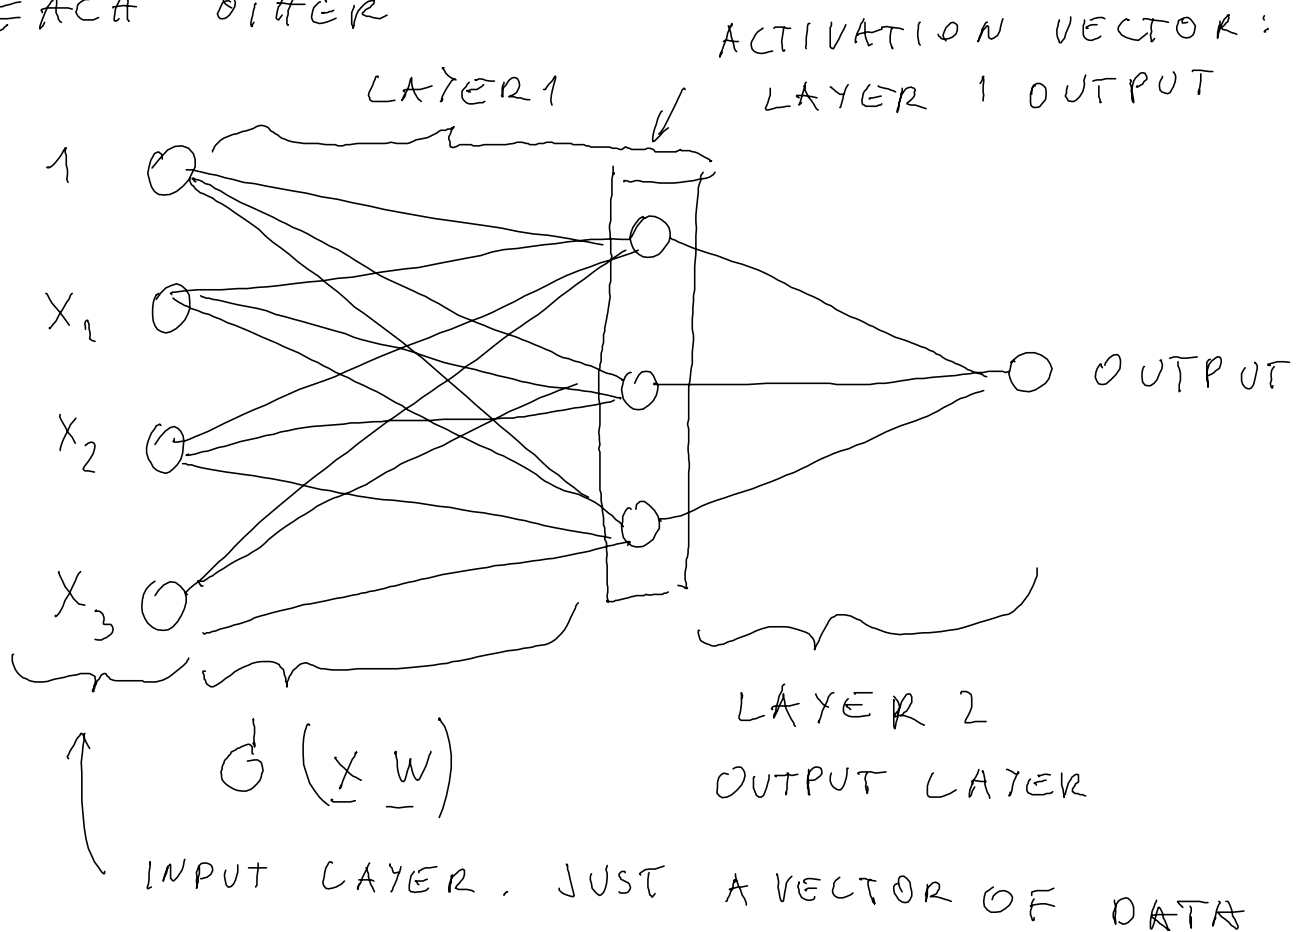 EACH OTHER
ACTIVATION VECTOR:
LAYER 1 OUTPUT
LAYER 1
1
X₁
X₂
X₃
OUTPUT
σ (X W)
LAYER 2
OUTPUT LAYER
INPUT LAYER. JUST A VECTOR OF DATA